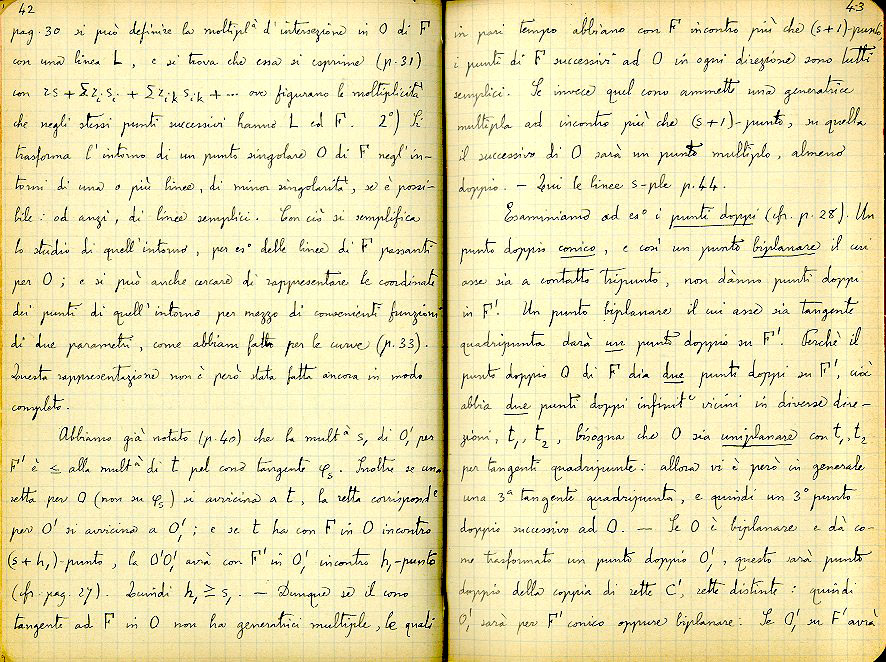 42
pag. 30 si può definire la moltipl.ᵃ d'intersezione in O di F
con una linea L, e si trova che essa si esprime (p. 31)
con rs + Σrᵢsᵢ + Σrᵢₖsᵢₖ + ... ove figurano le moltiplicità
che negli stessi punti successivi hanno L ed F. 2°) Si
trasforma l'intorno di un punto singolare O di F negl'in-
torni di una o più linee, di minor singolarità, se è possi-
bile: od anzi, di linee semplici. Con ciò si semplifica
lo studio di quell'intorno, per es° delle linee di F passanti
per O; e si può anche cercare di rappresentare le coordinate
dei punti di quell'intorno per mezzo di convenienti funzioni
di due parametri, come abbiam fatto per le curve (p. 33).
Questa rappresentazione non è però stata fatta ancora in modo
completo.
Abbiamo già notato (p. 40) che la multᵃ s₁ di O'₁ per
F' è ≤ alla multᵃ di t pel cono tangente φₛ. Inoltre se una
retta per O (non su φₛ) si avvicina a t, la retta corrispondᵉ
per O' si avvicina a O'₁; e se t ha con F in O incontro
(s+h₁)-punto, la O'O'₁ avrà con F' in O'₁ incontro h₁-punto
(cfr. pag. 27). Quindi h₁ ≥ s₁. — Dunque se il cono
tangente ad F in O non ha generatrici multiple, le quali
43
in pari tempo abbiano con F incontro più che (s+1)-punto
i punti di F successivi ad O in ogni direzione sono tutti
semplici. Se invece quel cono ammette una generatrice
multipla ad incontro più che (s+1)-punto, su quella
il successivo di O sarà un punto multiplo, almeno
doppio. — Qui le linee s-ple p. 44.
Esaminiamo ad es° i punti doppi (cfr. p. 28). Un
punto doppio conico, e così un punto biplanare il cui
asse sia a contatto tripunto, non dànno punti doppi
in F'. Un punto biplanare il cui asse sia tangente
quadripunta darà un punto doppio su F'. Perchè il
punto doppio O di F dia due punti doppi su F', cioè
abbia due punti doppi infinitᵉ vicini in diverse dire-
zioni, t₁, t₂, bisogna che O sia uniplanare con t₁, t₂
per tangenti quadripunte: allora vi è però in generale
una 3ᵃ tangente quadripunta, e quindi un 3° punto
doppio successivo ad O. — Se O è biplanare e dà co-
me trasformato un punto doppio O'₁, questo sarà punto
doppio della coppia di rette C', rette distinte: quindi
O'₁ sarà per F' conico oppure biplanare. Se O'₁ su F' avrà